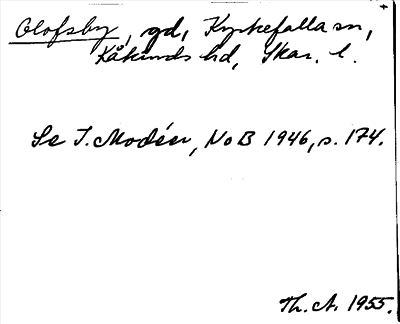 Olofsby, gd, Kyrkefalla sn,
Kåkinds hd, Skar. l.
Se I. Modéer, NoB 1946, s. 174.
Th. A. 1955.